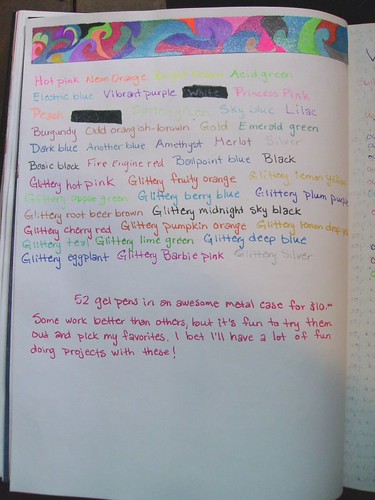 Hot pink Neon Orange Acid green
Electric blue Vibrant purple White Princess Pink
Peach Sky blue Lilac
Burgundy Odd orangish-brown Gold Emerald green
Dark blue Another blue Amethyst Merlot Silver
Basic black Fire Engine red Ballpoint blue Black
Glittery hot pink Glittery fruity orange Glittery lemon yellow
Glittery apple green Glittery berry blue Glittery plum purple
Glittery root beer brown Glittery midnight sky black
Glittery cherry red Glittery pumpkin orange Glittery lemon
Glittery teal Glittery lime green Glittery deep blue
Glittery eggplant Glittery Barbie pink Glittery Silver
52 gel pens in an awesome metal case for $10.00
Some work better than others, but it's fun to try them
out and pick my favorites. I bet I'll have a lot of fun
doing projects with these!